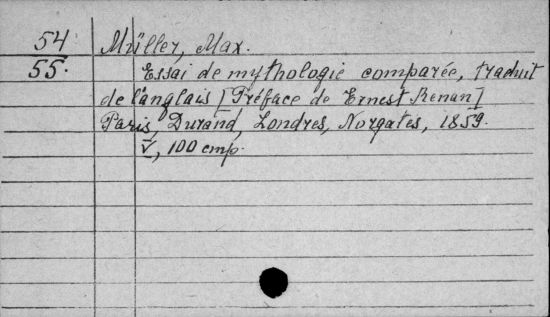 54 Müller, Max.
55. Essai de mythologie comparée, traduit
de l'anglais [Préface de Ernest Renan]
Paris, Durand, Londres, Norgates, 1859.
V, 100 стр.